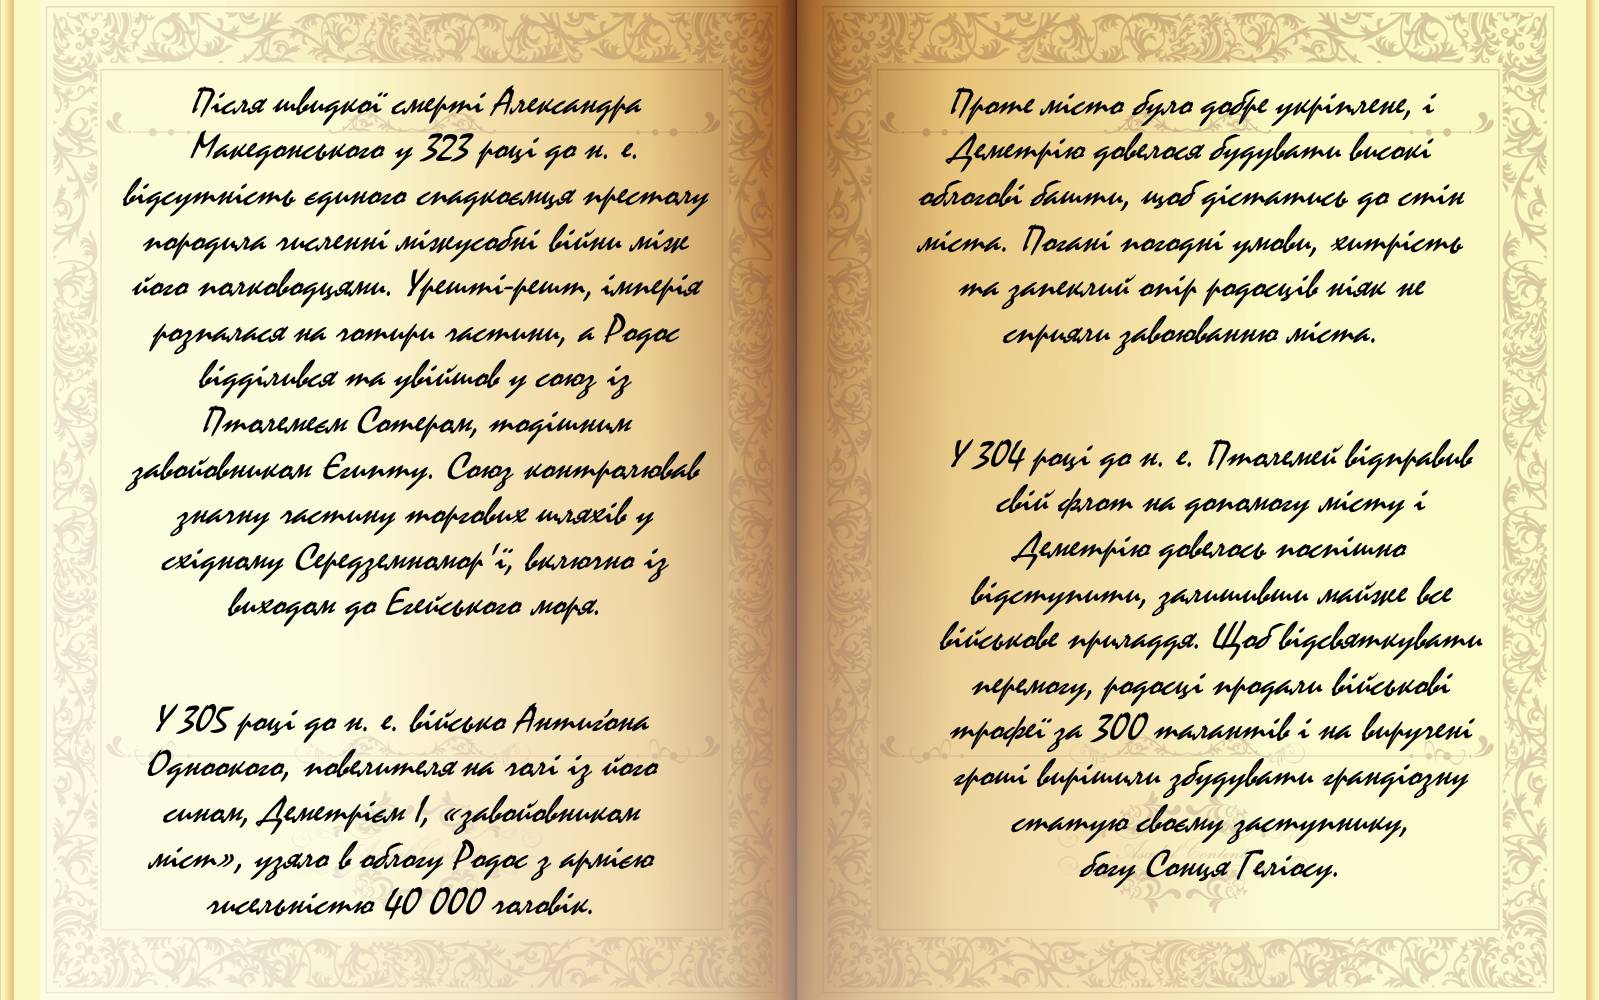 Після швидкої смерті Александра
Македонського у 323 році до н. е.
відсутність єдиного спадкоємця престолу
породила численні міжусобні війни між
його полководцями. Урешті-решт, імперія
розпалася на чотири частини, а Родос
відділився та увійшов у союз із
Птолемеєм Сотером, тодішним
завойовником Єгипту. Союз контролював
значну частину торгових шляхів у
східному Середземномор'ї, включно із
виходом до Егейського моря.
У 305 році до н. е. військо Антиґона
Одноокого, повелителя на чолі із його
сином, Деметрієм I, «завойовником
міст», узяло в облогу Родос з армією
чисельністю 40 000 чоловік.
Проте місто було добре укріплене, і
Деметрію довелося будувати високі
облогові башти, щоб дістатись до стін
міста. Погані погодні умови, хитрість
та запеклий опір родосців ніяк не
сприяли завоюванню міста.
У 304 році до н. е. Птолемей відправив
свій флот на допомогу місту і
Деметрію довелось поспішно
відступити, залишивши майже все
військове приладдя. Щоб відсвяткувати
перемогу, родосці продали військові
трофеї за 300 талантів і на виручені
гроші вирішили збудувати грандіозну
статую своєму заступнику,
богу Сонця Геліосу.